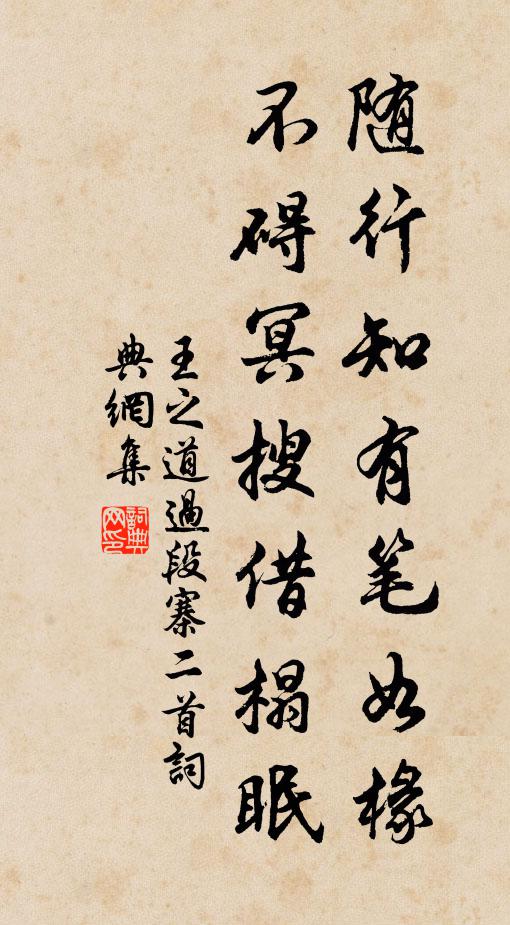 随行知有笔如椽
不碍冥搜借榻眠
王之道過段寨二首詞
典網集
詞典
网印